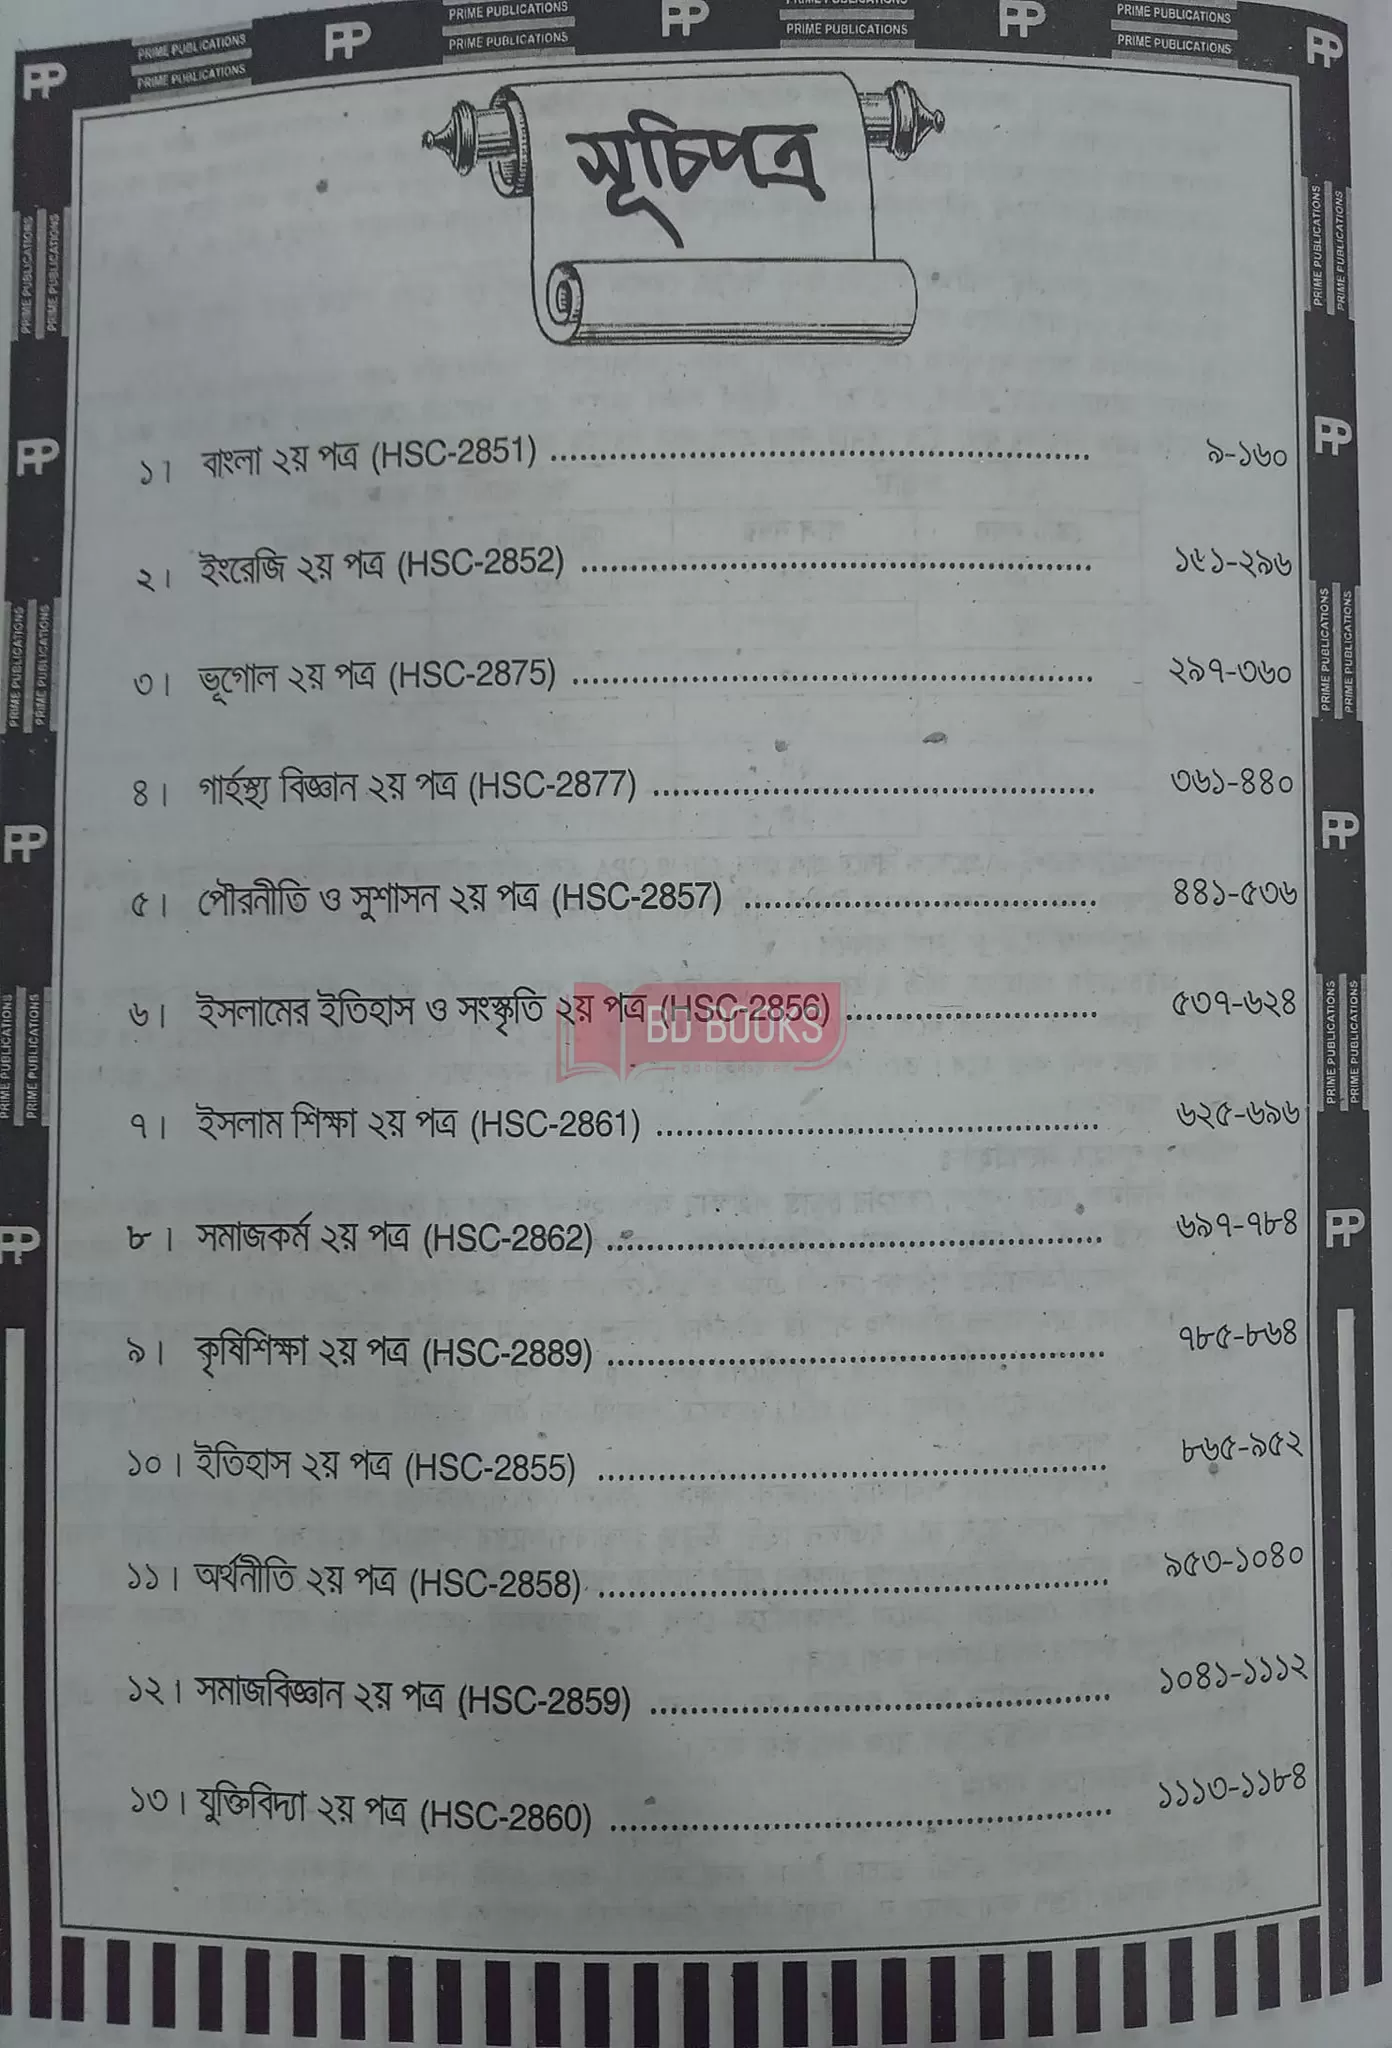 PRIME PUBLICATIONS
PRIME PUBLICATIONS
সূচিপত্র
১। বাংলা ২য় পত্র (HSC-2851) ................................................ ৯-১৬০
২। ইংরেজি ২য় পত্র (HSC-2852) ................................................ ১৬১-২৯৬
৩। ভূগোল ২য় পত্র (HSC-2875) ................................................ ২৯৭-৩৬০
৪। গার্হস্থ্য বিজ্ঞান ২য় পত্র (HSC-2877) ................................................ ৩৬১-৪৪০
৫। পৌরনীতি ও সুশাসন ২য় পত্র (HSC-2857) ................................................ ৪৪১-৫৩৬
৬। ইসলামের ইতিহাস ও সংস্কৃতি ২য় পত্র (HSC-2856) ................................................ ৫৩৭-৬২৪
BD BOOKS
৭। ইসলাম শিক্ষা ২য় পত্র (HSC-2861) ................................................ ৬২৫-৬৯৬
৮। সমাজকর্ম ২য় পত্র (HSC-2862) ................................................ ৬৯৭-৭৮৪
৯। কৃষিশিক্ষা ২য় পত্র (HSC-2889) ................................................ ৭৮৫-৮৬৪
১০। ইতিহাস ২য় পত্র (HSC-2855) ................................................ ৮৬৫-৯৫২
১১। অর্থনীতি ২য় পত্র (HSC-2858) ................................................ ৯৫৩-১০৪০
১২। সমাজবিজ্ঞান ২য় পত্র (HSC-2859) ................................................ ১০৪১-১১১২
১৩। যুক্তিবিদ্যা ২য় পত্র (HSC-2860) ................................................ ১১১৩-১১৮৪